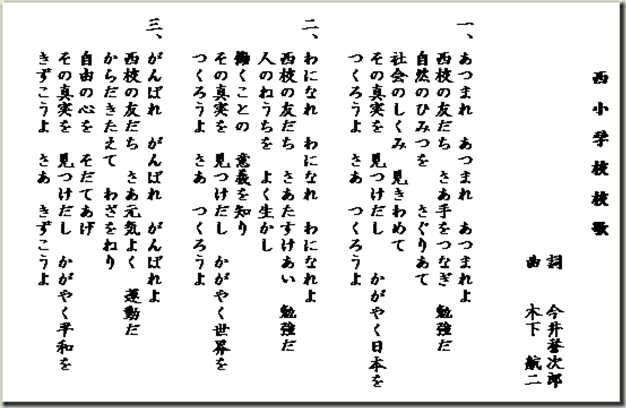 西小学校校歌
詞　今井誉次郎
曲　木下　航二
一、あつまれ　あつまれ　あつまれよ
西校の友だち　さあ手をつなぎ　勉強だ
自然のひみつを　さぐりあて
社会のしくみ　見きわめて
その真実を　見つけだし　かがやく日本を
つくろうよ　さあ　つくろうよ
二、わになれ　わになれ　わになれよ
西校の友だち　さあたすけあい　勉強だ
人のねうちを　よく生かし
働くことの　意義を知り
その真実を　見つけだし　かがやく世界を
つくろうよ　さあ　つくろうよ
三、がんばれ　がんばれ　がんばれよ
西校の友だち　さあ元気よく　運動だ
からだきたえて　わざをねり
自由の心を　そだてあげ
その真実を　見つけだし　かがやく平和を
きずこうよ　さあ　きずこうよ